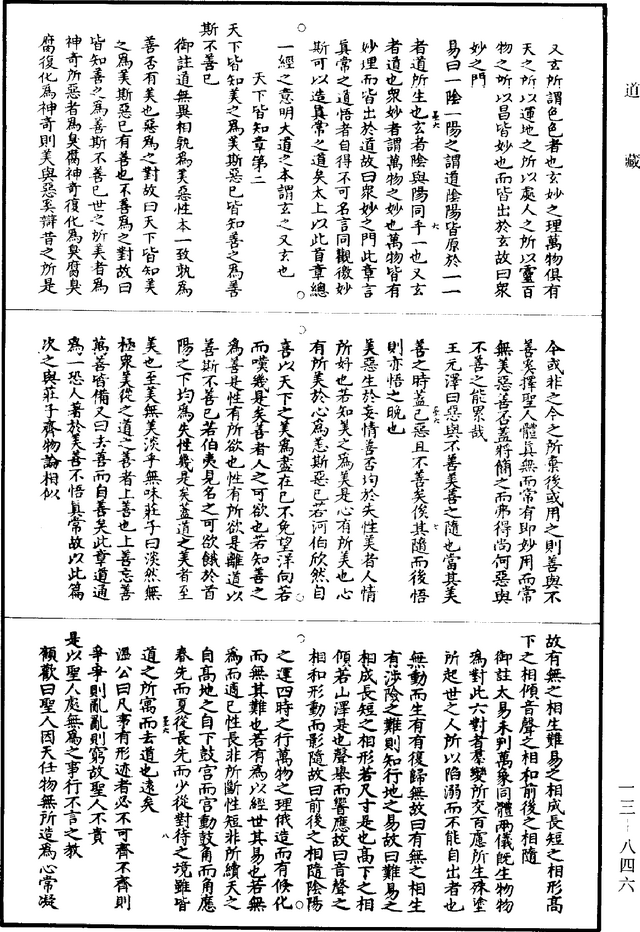 道藏
又玄所謂色色者也玄妙之理萬物俱有
天之所以運地之所以處人之所以靈百
物之所以昌皆妙也而皆出於玄故曰衆
妙之門
易曰一陰一陽之謂道陰陽皆原於一一
者道所生也玄者陰與陽同乎一也又玄
者道也衆妙者謂萬物之妙也萬物皆有
妙理而皆出於道故曰衆妙之門此章言
眞常之道悟者自得不可名言同觀徼妙
斯可以造眞常之道矣太上以此首章總
一經之意明大道之本謂玄之又玄也
天下皆知章第二
天下皆知美之爲美斯惡已皆知善之爲善
斯不善已
御註道無異相孰爲美惡性本一致孰爲
善否有美也惡爲之對故曰天下皆知美
之爲美斯惡已有善也不善爲之對故曰
皆知善之爲善斯不善已世之所美者爲
神奇所惡者爲臭腐神奇復化爲臭腐臭
腐復化爲神奇則美與惡奚辯昔之所是
今或非之今之所棄後或用之則善與不
善奚擇聖人體眞無而常有即妙用而常
無美惡善否蓋將簡之而弗得尚何惡與
不善之能累哉
王元澤曰惡與不善美善之隨也當其美
善之時蓋已惡且不善矣俟其隨而後悟
則亦悟之晩也
美惡生於妄情善否均於失性美者人情
所好也若知美之爲美是心有所美也心
有所美於心爲恙斯惡已若河伯欣然自
喜以天下之美爲盡在已不免望洋向若
而嘆幾是矣善者人之可欲也若知善之
爲善是性有所欲也性有所欲是離道以
善斯不善已若伯夷見名之可欲餓於首
陽之下均爲失性幾是矣蓋道之美者至
美也至美無美淡乎無味莊子曰淡然無
極衆美從之道之善者上善也上善忘善
萬善皆備又曰去善而自善矣此章道通
爲一恐人著於美善不悟眞常故以此篇
次之與莊子齊物論相似
故有無之相生難易之相成長短之相形高
下之相傾音聲之相和前後之相隨
御註太易未判萬象同體兩儀旣生物物
爲對此六對者羣變所交百慮所生殊塗
所起世之人所以陷溺而不能自出者也
無動而生有有復歸無故曰有無之相生
有涉險之難則知行地之易故曰難易之
相成長短之相形若尺寸是也高下之相
傾若山澤是也聲舉而響應故曰音聲之
相和形動而影隨故曰前後之相隨陰陽
之運四時之行萬物之理俄造而有倏化
而無其難也若有爲以經世其易也若無
爲而適已性長非所斷性短非所續天之
自高地之自下鼓宫而宫動鼓角而角應
春先而夏從長先而少從對待之境雖皆
道之所寓而去道也遠矣
溫公曰凡事有形迹者必不可齊不齊則
爭爭則亂亂則窮故聖人不貴
是以聖人處無爲之事行不言之教
顧歡曰聖人因天任物無所造爲心常凝
一三—八四六